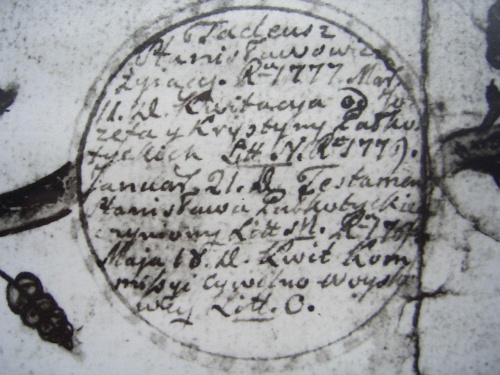 6 Tadeusz
Stanisławowicz
żyiący. R. 1777. Mar.
11. D. Kwitacya od Jo-
zefa y Krystyny
Litt. N. R. 1779.
Januar. 21. D. Testamen
Stanisława
czyniony Litt. R.
Maja 18. D. Kwit Kom
missyi Cywilno Woysko
wey Litt. O.